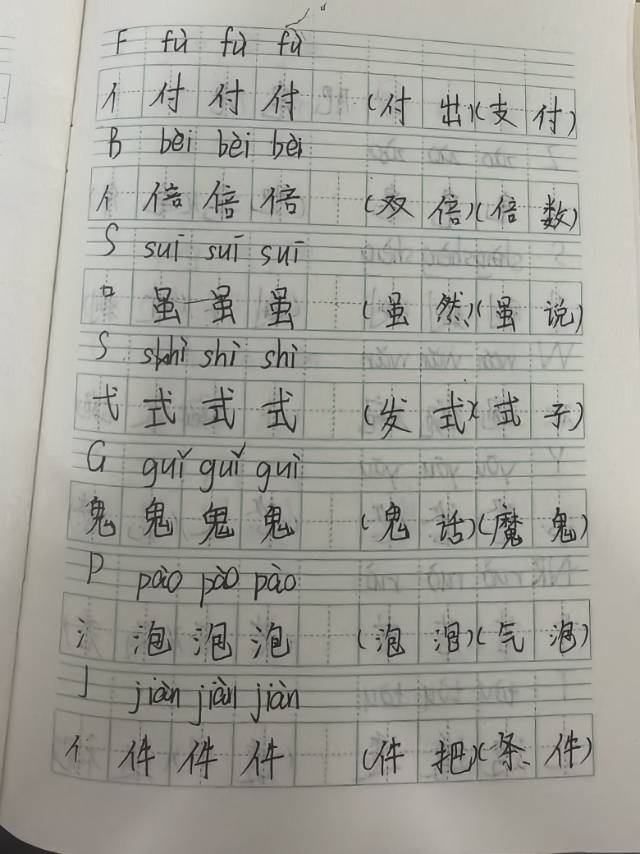 F fù fù fù
亻 付 付 付 (付 出)(支 付)
B bèi bèi bèi
亻 倍 倍 倍 (双 倍)(倍 数)
S suī suī suī
口 虽 虽 虽 (虽 然)(虽 说)
S shì shì shì
弋 式 式 式 (发 式)(式 子)
G guǐ guǐ guì
鬼 鬼 鬼 鬼 (鬼 话)(魔 鬼)
P pào pào pào
氵 泡 泡 泡 (泡 泪)(气 泡)
J jiàn jiàn jiàn
亻 件 件 件 (件 把)(条 件)